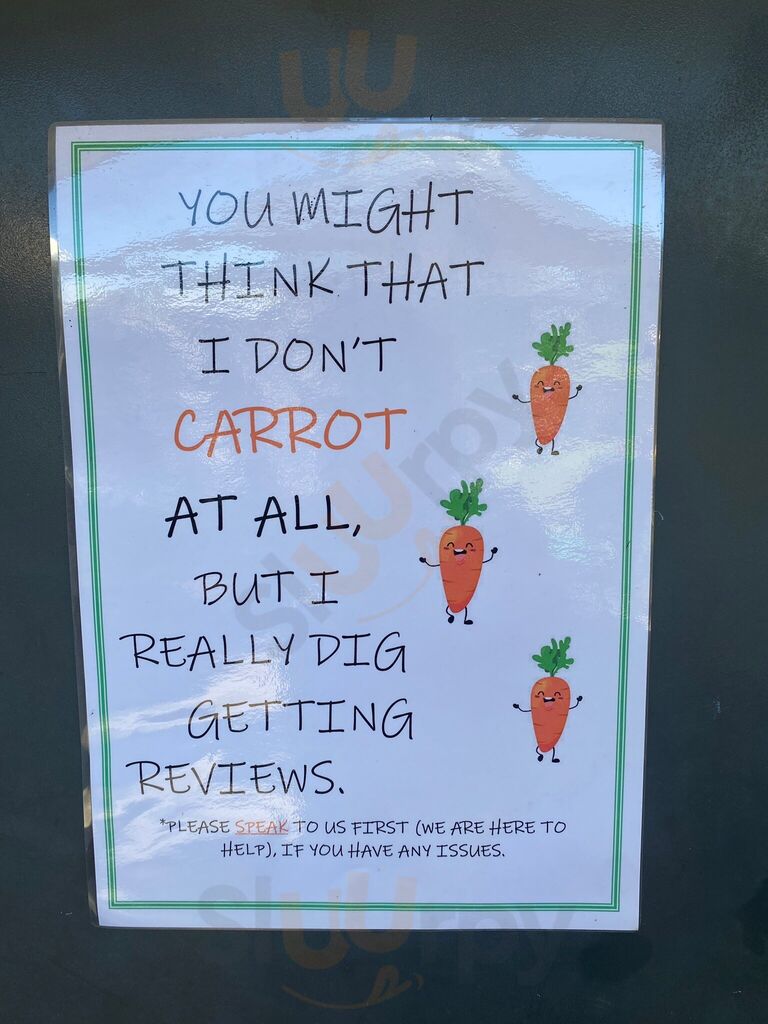 YOU MIGHT
THINK THAT
I DON'T
CARROT
AT ALL,
BUT I
REALLY DIG
GETTING
REVIEWS.
*PLEASE SPEAK TO US FIRST (WE ARE HERE TO
HELP), IF YOU HAVE ANY ISSUES.
sluurpy
sluurpy